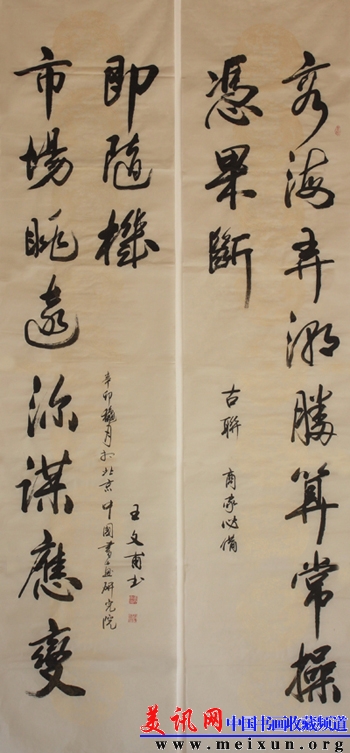 商海弄潮勝算常操
憑果斷
古聯 商家必備
市場眺遠深謀應變
即隨機
辛卯穐月於北京中國書畫研究院
王文甫书
美讯网 中国书画收藏频道
www.meixun.org